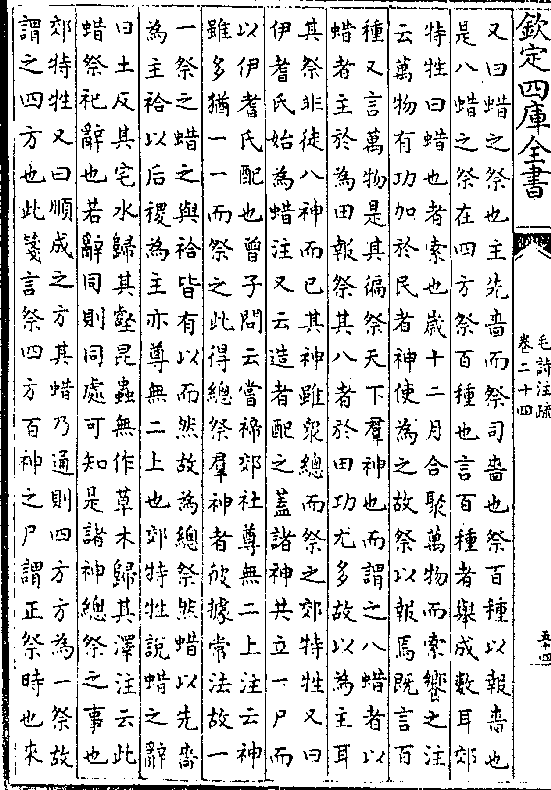 欽定四庫全書
毛詩注疏
卷二十四
五十四
又曰蜡之祭也主先嗇而祭司嗇也祭百種以報嗇也
是八蜡之祭在四方祭百種也言百種者舉成數耳郊
特牲曰蜡也者索也歲十二月合聚萬物而索饗之注
云萬物有功加於民者神使為之故祭以報焉既言百
種又言萬物是其徧祭天下羣神也而謂之八蜡者以
蜡者主於為田報祭其八者於田功尤多故以為主耳
其祭非徒八神而已其神雖衆總而祭之郊特牲又曰
伊耆氏始為蜡注又云造者配之蓋諸神共立一尸而
以伊耆氏配也曾子問云當禘郊社尊無二上注云神
雖多猶一一而祭之此得總祭羣神者彼據常法故一
一祭之蜡之與祫皆有以而然故為總祭然蜡以先嗇
為主祫以后稷為主亦尊無二上也郊特牲說蜡之辭
曰土反其宅水歸其壑昆蟲無作草木歸其澤注云此
蜡祭祀辭也若辭同則同處可知是諸神總祭之事也
郊特牲又曰順成之方其蜡乃通則四方方為一祭故
謂之四方也此箋言祭四方百神之尸謂正祭時也來